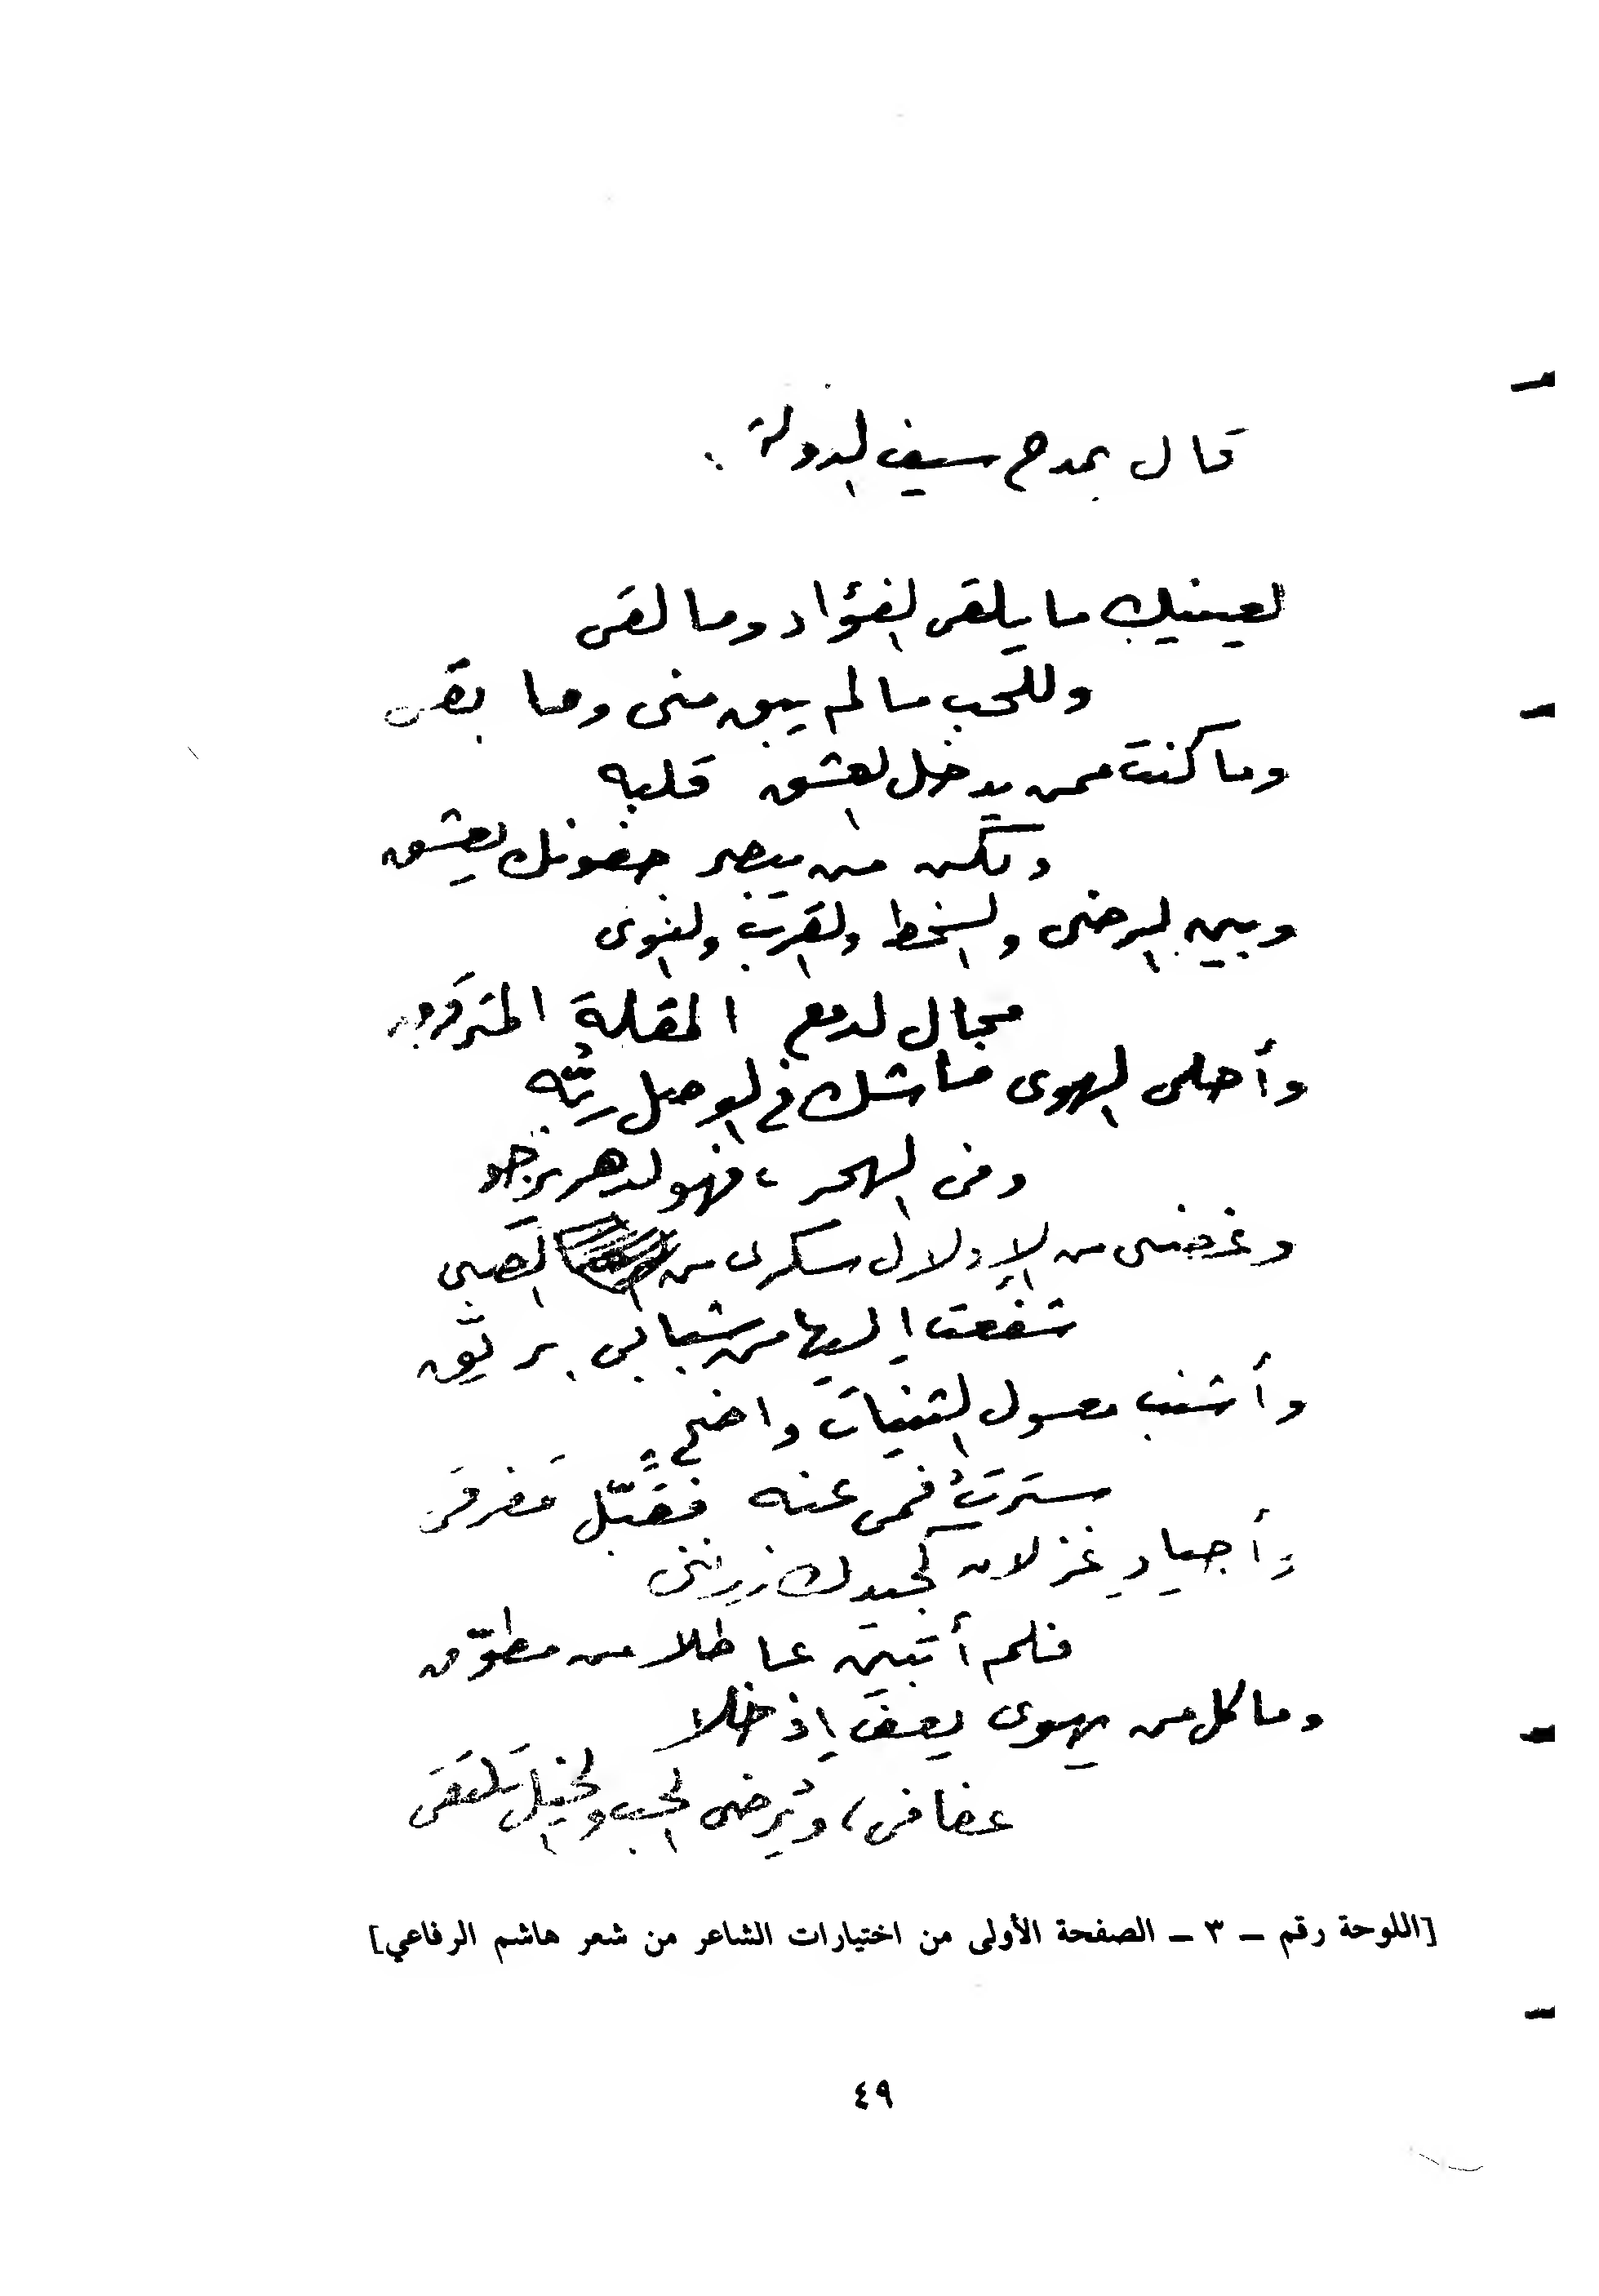 قال يمدح سيف الدولة :
لعينيك ما يلقى الفؤاد وما لقى
وللحب ما لم يبق منى وما بقى
وما كنت ممن يدخل العشق قلبه
ولكن من يبصر جفونك يعشق
وبين الرضى والسخط والقرب والنوى
مجال لدمع المقلة المترقرق
وأحلى الهوى ما شك فى الوصل ربُّه
وفى الهجر ، فهو الدهر يرجو
وغضبى من الإدلال سكرى من الصبى
شفعت إليها من شبابى بريّق
وأشنب معسول الثنيات واضحٍ
سترتُ فمى عنه فقبّل مفرقى
وأجيادِ غزلان كجيدك زرننى
فلم أتبين عاطلا من مطوّق
وما كل من يهوى يعف إذ خلا
عفافى ، ويُرضى الحب والخيل تلتقى
[اللوحة رقم - ٣ - الصفحة الأولى من اختيارات الشاعر من شعر هاشم الرفاعي]
٤٩